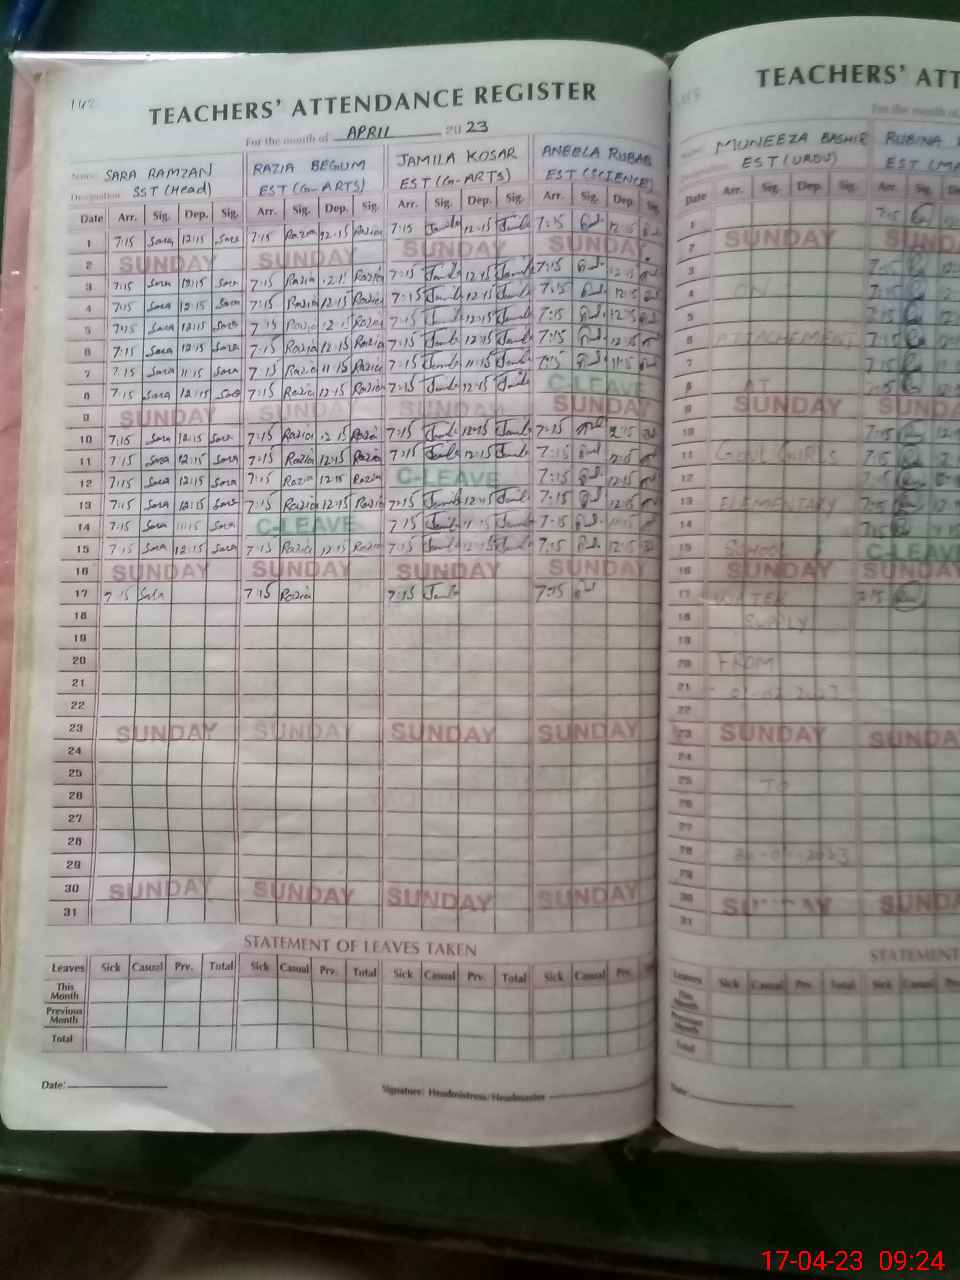 142
TEACHERS' ATTENDANCE REGISTER
For the month of APRIL 2023
Name SARA RAMZAN RAZIA BEGUM JAMILA KOSAR ANEELA RUBAB
Designation SST (Head) EST (G-ARTS) EST (G-ARTS) EST (SCIENCE)
Date Arr. Sig. Dep. Sig. Arr. Sig. Dep. Sig. Arr. Sig. Dep. Sig. Arr. Sig. Dep. Sig.
1 7:15 Sara 12:15 Sara 7:15 Razia 12:15 Razia 7:15 Jamila 12:15 Jamila 7:15 12:15
2 SUNDAY SUNDAY SUNDAY SUNDAY
3 7:15 Sara 12:15 Sara 7:15 Razia 12:15 Razia 7:15 Jamila 12:15 Jamila 7:15 12:15
4 7:15 Sara 12:15 Sara 7:15 Razia 12:15 Razia 7:15 Jamila 12:15 Jamila 7:15 12:15
5 7:15 Sara 12:15 Sara 7:15 Razia 12:15 Razia 7:15 Jamila 12:15 Jamila 7:15 12:15
6 7:15 Sara 12:15 Sara 7:15 Razia 12:15 Razia 7:15 Jamila 12:15 Jamila 7:15 12:15
7 7:15 Sara 11:15 Sara 7:15 Razia 11:15 Razia 7:15 Jamila 11:15 Jamila 7:15 11:15
8 7:15 Sara 12:15 Sara 7:15 Razia 12:15 Razia 7:15 Jamila 12:15 Jamila C-LEAVE
9 SUNDAY SUNDAY SUNDAY SUNDAY
10 7:15 Sara 12:15 Sara 7:15 Razia 12:15 Razia 7:15 Jamila 12:15 Jamila 7:15 12:15
11 7:15 Sara 12:15 Sara 7:15 Razia 12:15 Razia 7:15 Jamila 12:15 Jamila 7:15 12:15
12 7:15 Sara 12:15 Sara 7:15 Razia 12:15 Razia C-LEAVE 7:15 12:15
13 7:15 Sara 12:15 Sara 7:15 Razia 12:15 Razia 7:15 Jamila 12:15 Jamila 7:15 12:15
14 7:15 Sara 11:15 Sara C-LEAVE 7:15 Jamila 11:15 Jamila 7:15 11:15
15 7:15 Sara 12:15 Sara 7:15 Razia 12:15 Razia 7:15 Jamila 12:15 Jamila 7:15 12:15
16 SUNDAY SUNDAY SUNDAY SUNDAY
17 7:15 Sara 7:15 Razia 7:15 Jamila 7:15
18
19
20
21
22
23 SUNDAY SUNDAY SUNDAY SUNDAY
24
25
26
27
28
29
30 SUNDAY SUNDAY SUNDAY SUNDAY
31
STATEMENT OF LEAVES TAKEN
Leaves Sick Casual Prv. Total Sick Casual Prv. Total Sick Casual Prv. Total Sick Casual Prv.
This Month
Previous Month
Total
Date:
Signature: Headmistress/Headmaster
TEACHERS' ATT
For the month of
MUNEEZA BASHIR RUBINA
EST (URDU) EST (MA
Arr. Sig. Dep. Sig. Arr. Sig. Dep.
1 7:15
2 SUNDAY SUNDA
3 7:15
4 ON 7:15
5 7:15
6 ATTACHEMENT 7:15
7 7:15
8 AT 7:15
9 SUNDAY SUNDA
10 7:15
11 Govt GIRLS 7:15
12 7:15
13 ELEMENTARY 7:15
14 7:15
15 SCHOOL C-LEAV
16 SUNDAY SUNDA
17 WATER 7:15
18 SUPPLY
19
20 FROM
21
22
23 SUNDAY SUNDA
24
25 TO
26
27
28
29
30 SUNDAY SUNDA
31
STATEMENT
Leaves Sick Casual Prv. Total Sick Casual
This Month
Previous Month
Total
Date:
17-04-23 09:24